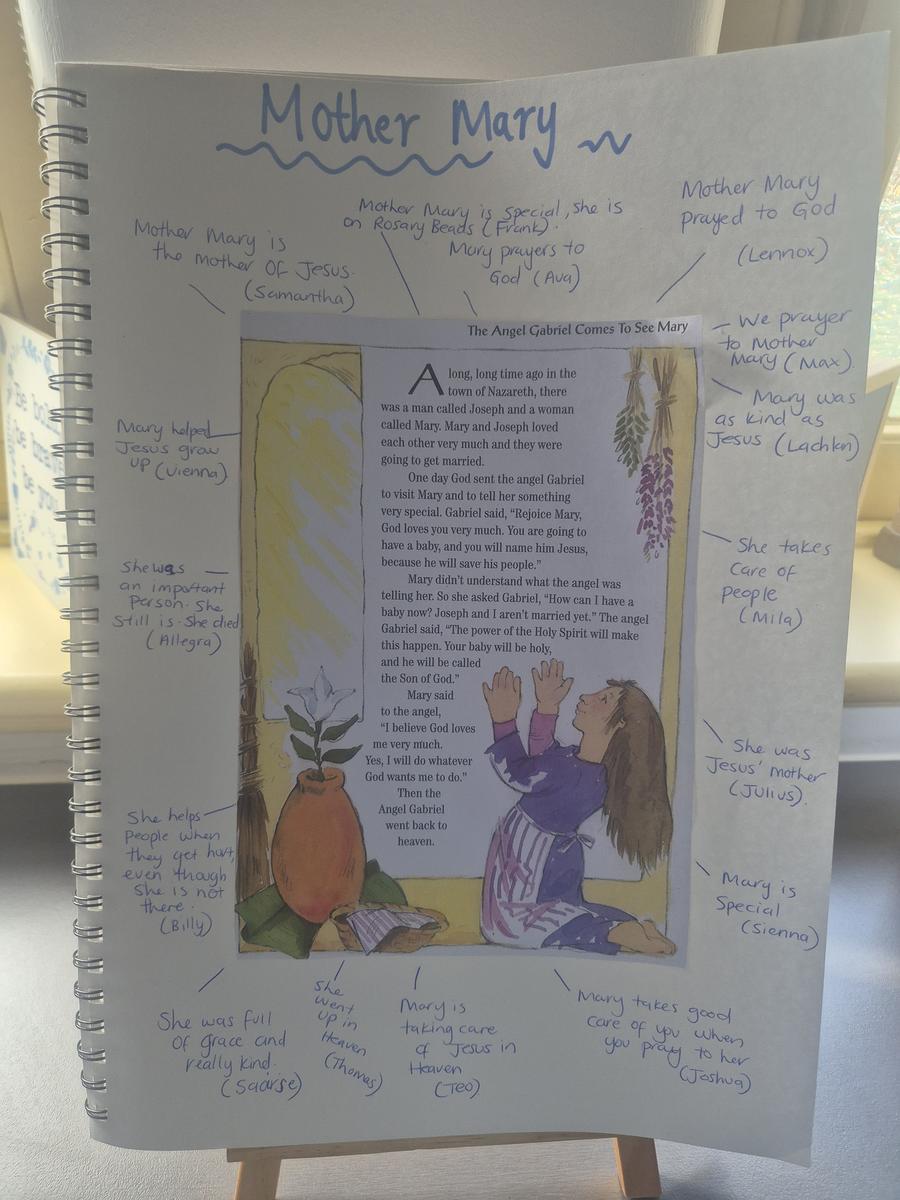 Mother Mary
Mother Mary is
the mother of Jesus.
(Samantha)
Mother Mary is special, she is
on Rosary Beads (Frank).
Mary prayers to
God (Ava)
Mother Mary
prayed to God
(Lennox)
We prayer
to Mother
Mary (Max)
Mary was
as kind as
Jesus (Lachlan)
She takes
care of
people
(Mila)
She was
Jesus' mother
(Julius).
Mary is
Special
(Sienna)
Mary helped
Jesus grow
up (Vienna)
She was
an important
person. She
still is. She died
(Allegra)
She helps
people when
they get hurt,
even though
she is not
there.
(Billy)
The Angel Gabriel Comes To See Mary
A long, long time ago in the
town of Nazareth, there
was a man called Joseph and a woman
called Mary. Mary and Joseph loved
each other very much and they were
going to get married.
One day God sent the angel Gabriel
to visit Mary and to tell her something
very special. Gabriel said, “Rejoice Mary,
God loves you very much. You are going to
have a baby, and you will name him Jesus,
because he will save his people.”
Mary didn’t understand what the angel was
telling her. So she asked Gabriel, “How can I have a
baby now? Joseph and I aren’t married yet.” The angel
Gabriel said, “The power of the Holy Spirit will make
this happen. Your baby will be holy,
and he will be called
the Son of God.”
Mary said
to the angel,
“I believe God loves
me very much.
Yes, I will do whatever
God wants me to do.”
Then the
Angel Gabriel
went back to
heaven.
She was full
of grace and
really kind.
(Saoirse)
She
went
up in
Heaven
(Thomas)
Mary is
taking care
of Jesus in
Heaven
(Teo)
Mary takes good
care of you when
you pray to her
(Joshua)
be
be
be